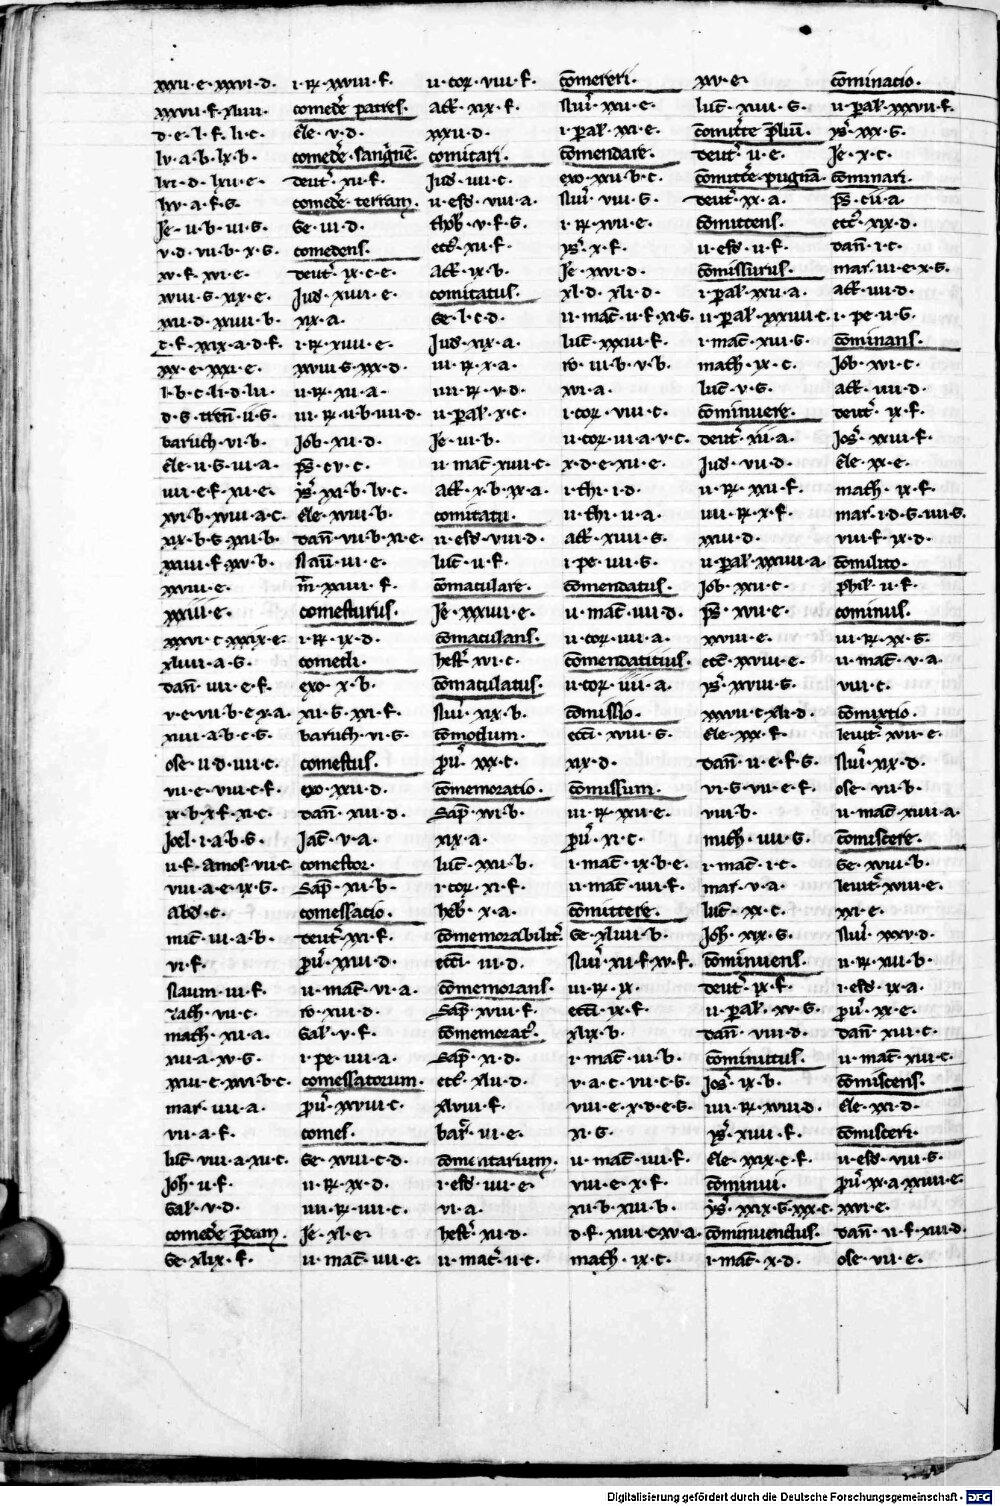 xxii·e·xxvi·d·
xxxvii·f·xliiii·
d·e·l·f·li·c·
lv·a·b·lx·b·
lxi·d·lxii·e·
lxv·a·f·g·
Je·ii·b·vi·g·
v·d·vii·b·x·g·
xv·f·xvi·e·
xviii·g·xix·e·
xxi·d·xxiiii·b·
c·f·xxix·a·d·f·
xxx·e·xxxi·e·
l·b·c·li·d·lii·
d·g·tren̄·ii·g·
baruch·vi·b·
eȝe·ii·g·iii·a·
iiii·e·f·xi·e·
xvi·b·xviii·a·c·
xix·b·g·xxi·b·
xxiiii·f·xxv·b·
xxviii·e·
xxxiii·e·
xxxvi·c·xxxix·e·
xliiii·a·g·
dan̄·iiii·e·f·
v·e·vii·b·e·x·a·
xiii·a·b·c·g·
ose·ii·d·iiii·c·
vii·e·viii·c·f·
ix·b·x·f·xi·c·
Joel·i·a·b·g·
ii·f·amos·vii·c·
viii·a·e·ix·g·
abd·c·
mic̄·iii·a·b·
vi·f·
Naum·iii·f·
zach·vii·c·
math·xii·a·
xiii·a·xv·g·
xxiii·c·xxvi·b·c·
mar·iiii·a·
vii·a·f·
luc̄·viii·a·xii·c·
Joh·ii·f·
Gal·v·d·
comedē p̄dam·
Ge·xlix·f·
i·R·xxviii·f·
comedē patres·
eȝe·v·d·
comedē sangnē·
deut̄·xii·f·
comedē terram·
Ge·iii·d·
comedens·
deut̄·ix·c·e·
Jud·xiiii·e·
xix·a·
i·R·xiiii·e·
xxviii·g·xxx·d·
ii·R·xii·a·
iii·R·ii·b·iiii·d·
Job·xii·d·
ps̄·cv·c·
ys̄·xxi·b·lv·c·
eȝe·xviii·b·
dan̄·vii·b·xi·e·
Naū·iii·e·
m̄·xxiiii·f·
comesturus·
i·R·ix·d·
comedi·
exo·x·b·
xii·g·xxi·f·
baruch·vi·g·
comestus·
exo·xxii·d·
dan̄·xiii·d·
Jac̄·v·a·
comestor·
Sap̄·xii·b·
comessatio·
deut̄·xxi·f·
pū·xxiii·d·
ii·mac̄·vi·a·
ro·xiii·d·
Gal·v·f·
i·pe·iiii·a·
comessatorum·
pū·xxviii·c·
comes·
Ge·xviii·c·d·
ii·R·xx·d·
iiii·R·iiii·c·
Je·xl·e·
ii·mac̄·iiii·e·
ii·cor·viii·f·
act̄·xix·f·
xxii·d·
comitari·
Jud·iiii·c·
ii·esd·viii·a·
thob̄·v·f·g·
ecc̄·xii·f·
act̄·ix·b·
comitatus·
Ge·l·c·d·
Jud·xix·a·
iii·R·x·a·
iiii·R·v·d·
ii·paral·x·c·
Je·iii·b·
ii·mac̄·xiii·c·
act̄·x·b·xx·a·
comitatu·
ii·esd·viii·d·
luc̄·ii·f·
cōmaculare·
Je·xxxiii·e·
cōmaculans·
hest̄·xvi·c·
cōmaculatus·
Nuī·xix·b·
cōmodum·
pū·xx·c·
cōmemoratio·
Sap̄·xvi·b·
xix·a·
luc̄·xxii·b·
i·cor·xi·f·
heb̄·x·a·
cōmemorabilit̄·
eccī·iii·d·
cōmemorans·
Sap̄·xviii·f·
cōmemorat̄·
Sap̄·xi·d·
ecc̄·xlii·d·
xlviii·f·
bar̄·iii·e·
cōmentarium·
i·esd·iiii·e·
vi·a·
hest̄·xii·d·
ii·mac̄·ii·c·
cōmereri·
Nuī·xxi·e·
i·paral·xxi·e·
cōmendare·
exo·xxii·b·c·
Nuī·viii·g·
i·R·xvii·e·
ys̄·x·f·
Je·xxvi·d·
xl·d·xli·d·
ii·mac̄·ii·f·xi·g·
luc̄·xxiii·f·
ro·iii·b·v·b·
xvi·a·
i·cor·viii·c·
ii·cor·iii·a·v·c·
x·d·e·xii·e·
i·thi·i·d·
ii·thi·ii·a·
act̄·xiiii·g·
i·pe·iiii·g·
cōmendatus·
ii·mac̄·iiii·d·
ii·cor·iiii·a·
cōmendaticius·
ii·cor·iii·a·
cōmissio·
eccī·xviii·g·
xix·d·
cōmissum·
iii·R·xxii·e·
pū·xi·c·
i·mac̄·ix·b·e·
ii·mac̄·iiii·f·
cōmittere·
Ge·xliiii·b·
Nuī·xii·f·xv·f·
iii·R·ix·
eccī·ix·f·
xlix·b·
i·mac̄·iii·b·
v·a·c·vii·c·g·
viii·e·x·d·e·g·
xi·g·
ii·mac̄·iiii·f·
viii·e·x·f·
xii·b·xiii·b·
d·f·xiiii·c·xv·a·
math·ix·c·
xxv·e·
luc̄·xiiii·g·
cōmittē p̄liū·
deut̄·ii·e·
cōmittē pugnā·
deut̄·xx·a·
cōmittens·
ii·esd·ii·f·
cōmissurus·
i·paral·xxii·a·
ii·paral·xxxiiii·c·
i·mac̄·xiii·g·
math·ix·c·
luc̄·v·g·
cōminuere·
deut̄·xii·a·
Jud·vii·d·
ii·R·xxii·f·
iiii·R·x·f·
xxiii·d·
ii·paral·xxxiiii·a·
Job·xxi·c·
ps̄·xvii·e·
xxviii·e·
ecc̄·xxviii·e·
ys̄·xxviii·g·
xxxvii·c·xli·d·
eȝe·xxx·f·
dan̄·ii·e·f·g·
vi·g·vii·e·f·
viii·b·
mich·iiii·g·
i·mac̄·i·c·
mar·v·a·
luc̄·xx·c·
Joh·xix·g·
cōminuens·
deut̄·ix·f·
ii·paral·xv·g·
dan̄·viii·d·
cōminutus·
Jos̄·ix·b·
iiii·R·xviii·d·
ys̄·xiiii·f·
eȝe·xxix·c·f·
cōminui·
ys̄·xxix·g·xxx·c·
cōminuendus·
i·mac̄·x·d·
cōminacio·
ii·paral·xxxvii·f·
ys̄·xxx·g·
Je·x·c·
cōminari·
ps̄·cii·a·
ecc̄·xix·d·
dan̄·i·c·
mar·iii·e·x·g·
act̄·iiii·d·
i·pe·ii·g·
cōminans·
Job·xvi·c·
act̄·iiii·d·
deut̄·ix·f·
Jos̄·xxiii·f·
eȝe·xx·e·
math·ix·f·
mar·i·d·g·iiii·g·
viii·f·ix·d·
cōmilito·
phil·ii·f·
cominus·
iii·R·xx·g·
ii·mac̄·v·a·
viii·c·
cōmixtio·
leuit̄·xvii·e·
Nuī·xix·d·
ose·vii·b·
ii·mac̄·xiiii·a·
cōmiscere·
Ge·xviii·b·
leuit̄·xviii·e·
xxi·e·
Nuī·xxv·d·
ii·R·xii·b·
i·esd·ix·a·
pū·xx·e·
dan̄·xiii·c·
ii·mac̄·xiii·c·
cōmiscens·
eȝe·xxi·d·
cōmisceri·
ii·esd·viii·g·
pū·xx·a·xxiiii·e·
xxvi·e·
dan̄·ii·f·xiii·d·
ose·vii·e·
Digitalisierung gefördert durch die Deutsche Forschungsgemeinschaft - DFG